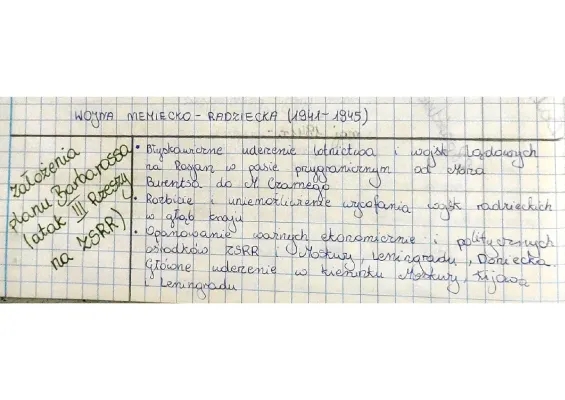 WOJNA NIEMIECKO-RADZIECKA (1941-1945)
Założenia
planu Barbarossa
(atak III Rzeszy
na ZSRR)
• Błyskawiczne uderzenie lotnictwa i wojsk lądowych
na Rosjan w pasie przygranicznym od Morza
Barentsa do M Czarnego
• Rozbicie i uniemożliwienie wycofania wojsk radzieckich
w głąb kraju
• Opanowanie ważnych ekonomicznie i politycznych
ośrodków ZSRR i Moskwy, Leningradu, Doniecka.
Główne uderzenie w kierunku Moskwy, Kijowa
Leningradu